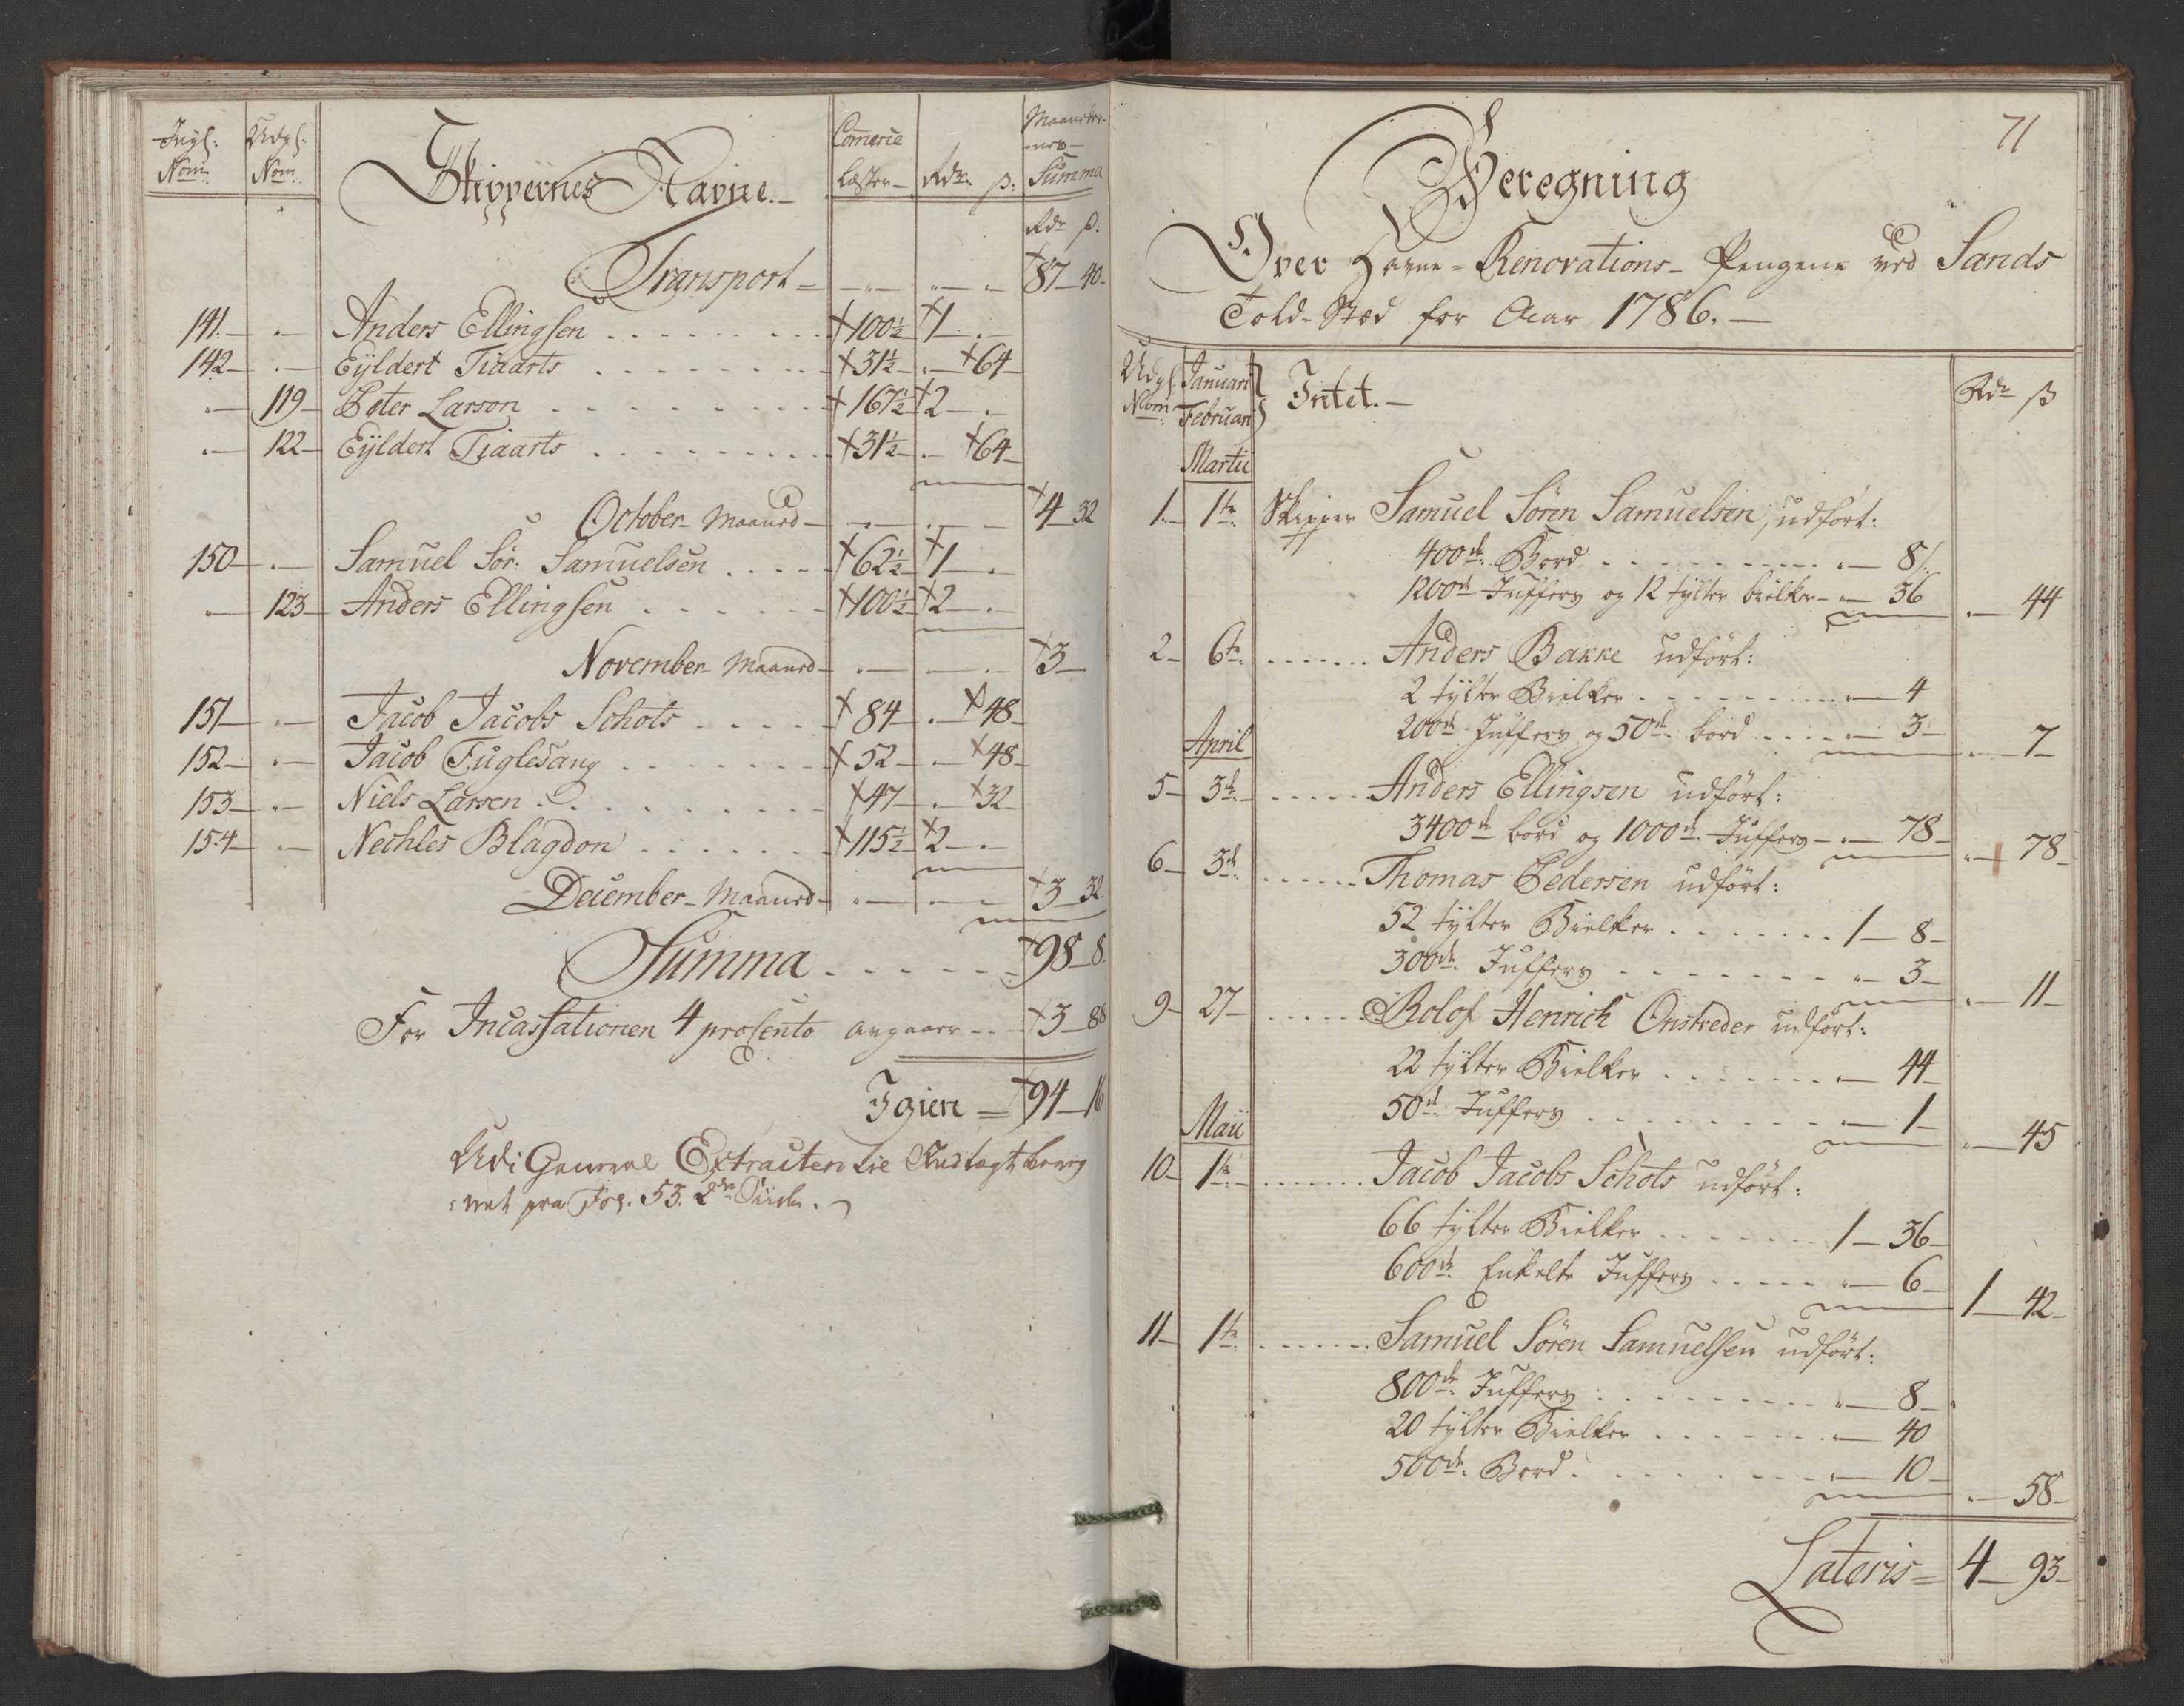 Indg: Nom:  Udg: Nom:  Skippernes Navne.  Commerce Læster  Rdr. ß:  Maaneder-nes Summa
Rdr ß.
Transport = 87 - 40 -
141. Anders Ellingsen 100½ 1
142 Eÿldert Tiaarts 31½ 64
119 Peter Larson 167½ 2
122 Eÿldert Tiaarts 31½ 64
October Maaned 4 32
150 Samuel Sör: Samuelsen 62½ 1
123 Anders Ellingsen 100½ 2
November Maaned 3
151 Jacob Jacobs Schots 84 48
152 Jacob Fuglesang 52 48
153 Niels Larsen 47 32
154 Nechles Blagdon 115½ 2
December Maaned 3 32
Summa 98 8
For Incassationen 4 procento avgaaer 3 88
Igien 94 16
Udi General Extracten lie
net pra Fol. 53. 2den Siide.
71
Beregning
Over Havne-Renovations-Pengene ved Sands
Told-Stæd for Aar 1786.
Udg: Nom: Januari Februari Intet. Rdr ß
Martii
1 1te Skipper Samuel Sören Samuelsen, udfört:
400de Bord 8
1200de Juffers og 12 tÿlter bielker 36 44
2 6te Anders Bakke udfört:
2 tÿlter Bielker 4
200de Juffers og 50de bord 3 7
April
5 3de Anders Ellingsen udfört:
3400de bord og 1000de Juffers 78 78
6 3de Thomas Pedersen udfört:
52 tÿlter Bielker 1 8
300de Juffers 3 11
9 27 Rolof Henrich Onstreder udfört:
22 tÿlter Bielker 44
50de Juffers 1 45
Maii
10 1te Jacob Jacobs Schots udfört:
66 tÿlter Bielker 1 36
600de Enkelte Juffers 6 1 42
11 1te Samuel Sören Samuelsen udfört:
800de Juffers 8
20 tÿlter Bielker 40
500de Bord 10 58
Lateris = 4 93